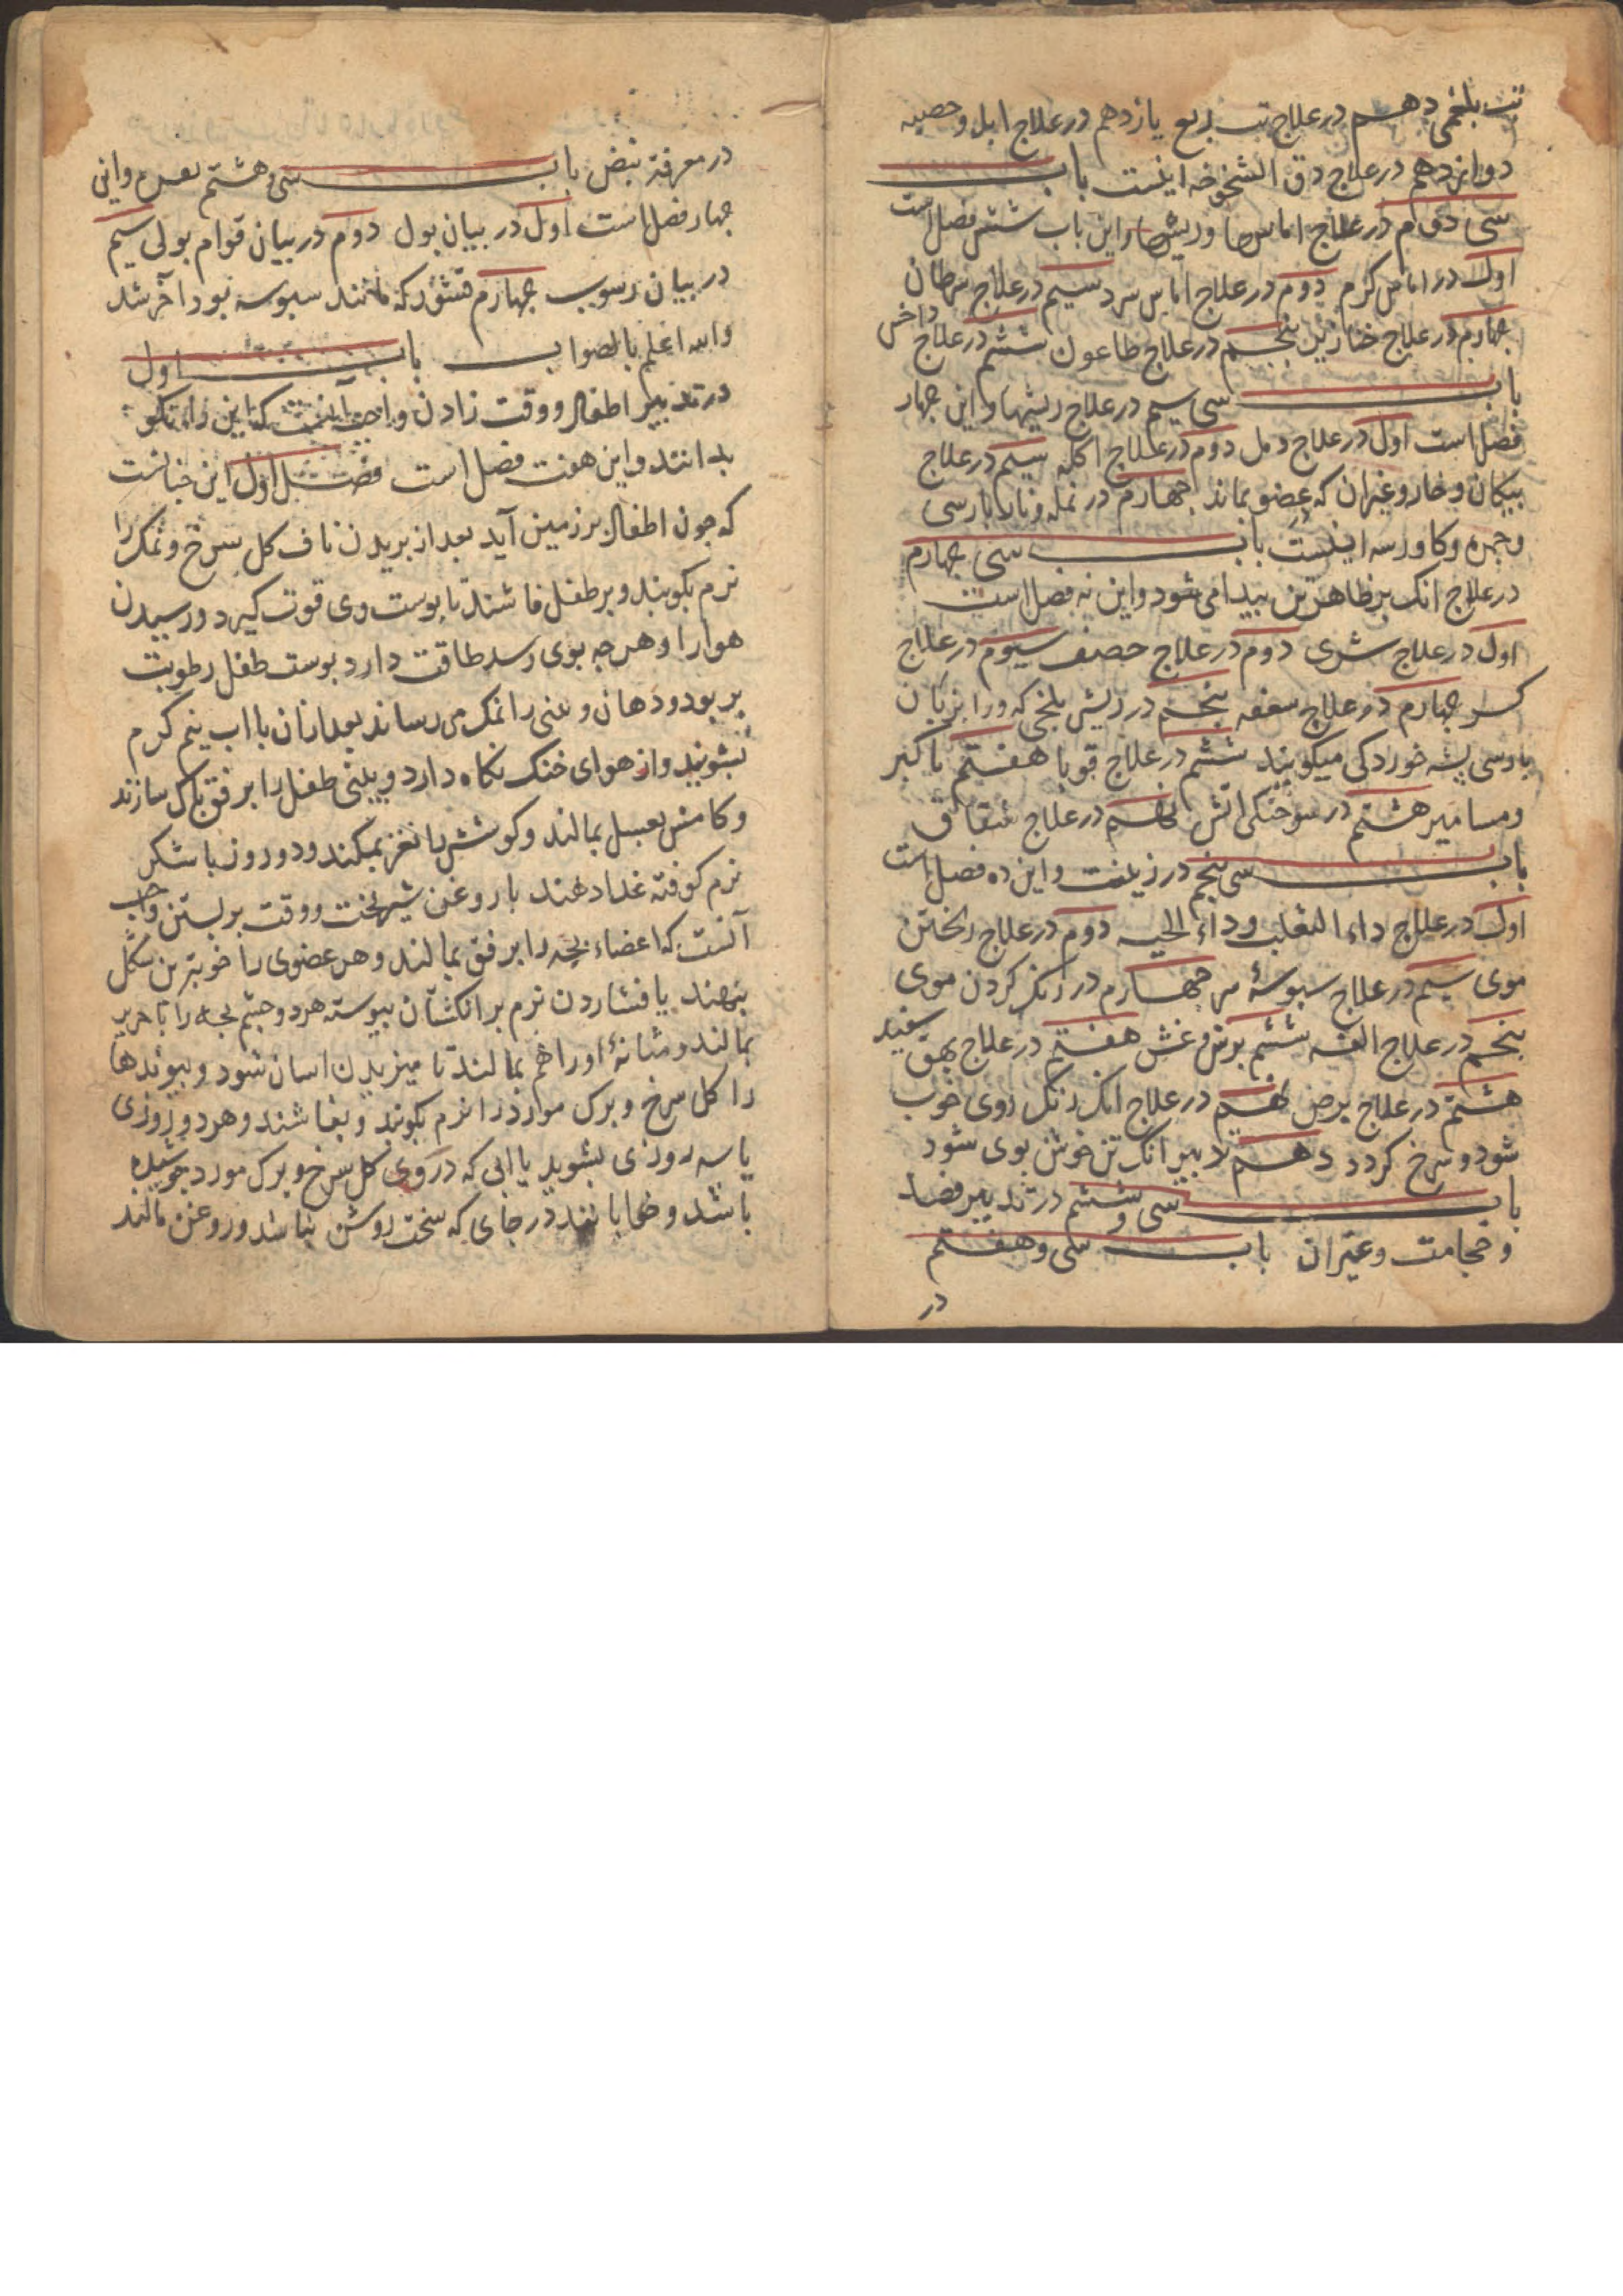 تب بلغمی دهم در علاج تب ربع یازدهم در علاج ابله و حصبه
دوازدهم در علاج دق الشیخوخه اینست باب
سی دوم در علاج اماسها و ریشها و این باب شش فصل است
اول در اماس کرم دوم در علاج اماس سرد سیم در علاج سرطان
جهارم در علاج خنازیر پنجم در علاج طاعون ششم در علاج داخس
باب سی سیم در علاج ریشها و این جهار
فصل است اول در علاج دمل دوم در علاج اکله سیم در علاج
پیکان و خار و غیر ان که بر عضو بماند جهارم در نمله و نار بارسی
و جمره و کاورسه اینست باب سی جهارم
در علاج انک بر ظاهر تن پیدا می شود و این نه فصل است
اول در علاج شری دوم در علاج حصف سیوم در علاج
کر جهارم در علاج سعفه پنجم در ریش بلخی که ورا بزبان
بارسی پشه خوردکی میکویند ششم در علاج قوبا هفتم تا کبر
و مسامیر هشتم در سوختکی اتش نهم در علاج شقاق
باب سی پنجم در زینت و این ده فصل است
اول در علاج داء الثعلب و داء الحیه دوم در علاج ریختن
موی سیم در علاج سبوسهٔ سر جهارم در رنک کردن موی
پنجم در علاج الفه ششم برش و غش هفتم در علاج بهق سفید
هشتم در علاج برص نهم در علاج انک رنک روی خوب
شود و سرخ کردد دهم تدبیر انک تن خوش بوی شود
باب سی و ششم در تدبیر فصد
و حجامت و غیر ان باب سی و هفتم
در
در معرفة نبض باب سی و هشتم و این
جهار فصل است اول در بیان بول دوم در بیان قوام بولی سیم
در بیان رسوب جهارم قشور که مانند سبوسه بود اخر شد
والله اعلم بالصواب باب اول
در تدبیر اطفال و وقت زادن واجب آنست که این را نیکو
بدانند و این هفت فصل است فصل اول این جنانست
که جون اطفال بر زمین آید بعد از بریدن ناف کل سرخ و نمک را
نرم بکوبند و بر طفل فاشند تا بوست وی قوت کیرد و رسیدن
هوا را و هرجه بوی رسد طاقت دارد بوست طفل رطوبت
بر بود و دهان و بینی را نمک می رساند بعد ازان با اب نیم کرم
بشویند و از هوای خنک نکاه دارد و بینی طفل را برفق پاک سازند
و کامش بعسل بمالند و کوشش تا نغز بمکند و دو روز با شکر
نرم کوفته غذا دهند با روغن شیربخت و وقت بر بستن واجب
آنست که اعضاء بچه را برفق بمالند و هر عضوی را خوبترین شکل
بنهند با فشاردن نرم بر انکشتان پیوسته هر دو جشم بچه را با حریر
بمالند و مثانهٔ او را هم بمالند تا میزیدن اسان شود و پیوندها
را کل سرخ و برک مورد را نرم بکوبند و بفاشند و هر دو روزی
یا سه روزی بشوید با ابی که در وی کل سرخ و برک مورد جوشیده
باشد و خوابانند در جای که سخت روشن نباشد و روغن مالند